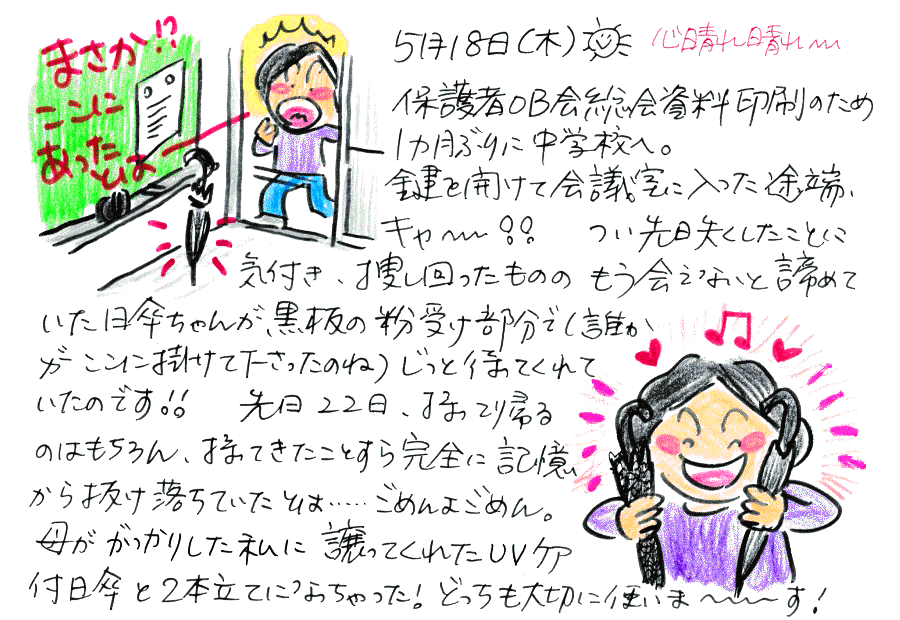 まさか!?
ここに
あった
とは
5月18日(木) 心晴れ晴れ〜
保護者OB会総会資料印刷のため
1カ月ぶりに中学校へ。
鍵を開けて会議室に入った途端、
キャ〜!! つい先日失くしたことに
気付き、捜し回ったものの もう会えないと諦めて
いた日傘ちゃんが、黒板の粉受け部分で(誰か
がここに掛けて下さったのね)じっと待ってくれて
いたのです!! 先月22日、持って帰る
のはもちろん、持ってきたことすら完全に記憶
から抜け落ちていたとは……ごめんよごめん。
母ががっかりした私に譲ってくれたUVケア
付日傘と2本立てになっちゃった!どっちも大切に使いま〜〜す!